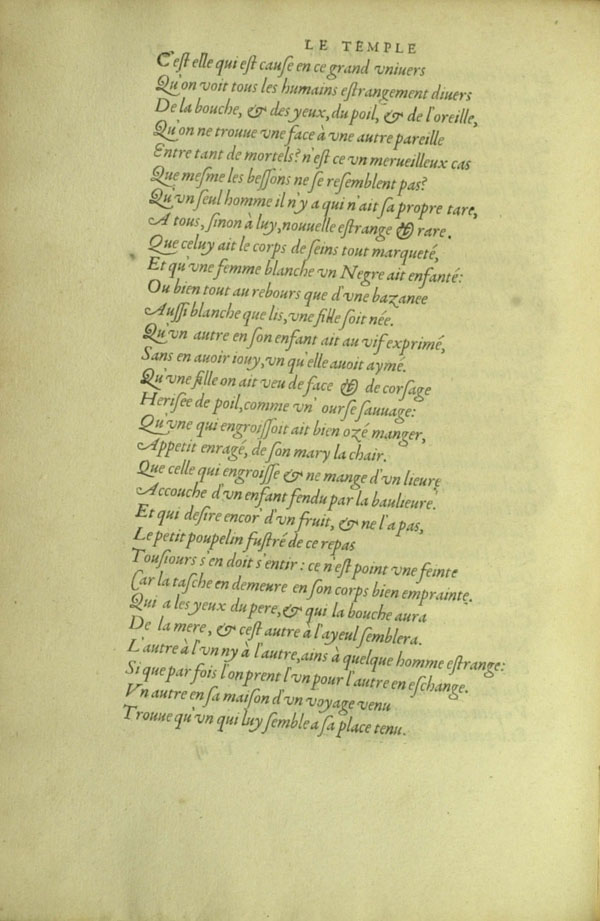 LE TEMPLE
C'est elle qui est cause en ce grand vniuers
Qu'on voit tous les humains estrangement diuers
De la bouche, & des yeux, du poil, & de l'oreille,
Qu'on ne trouue vne face à vne autre pareille
Entre tant de mortels? n'est ce vn merueilleux cas
Que mesme les bessons ne se resemblent pas?
Qu'vn seul homme il n'y a qui n'ait sa propre tare,
A tous, sinon à luy, nouuelle estrange & rare.
Que celuy ait le corps de seins tout marqueté,
Et qu'vne femme blanche vn Negre ait enfanté:
Ou bien tout au rebours que d'vne bazanee
Aussi blanche que lis, vne fille soit née.
Qu'vn autre en son enfant ait au vif exprimé,
Sans en auoir iouy, vn qu'elle auoit aymé.
Qu'vne fille on ait veu de face & de corsage
Herisee de poil, comme vn' ourse sauuage:
Qu'vne qui engroissoit ait bien ozé manger,
Appetit enragé, de son mary la chair.
Que celle qui engroisse & ne mange d'vn lieure
Accouche d'vn enfant fendu par la baulieure.
Et qui desire encor' d'vn fruit, & ne l'a pas,
Le petit poupelin fustré de ce repas
Tousiours s'en doit s'entir: ce n'est point vne feinte
Car la tasche en demeure en son corps bien emprainte.
Qui a les yeux du pere, & qui la bouche aura
De la mere, & cest autre à l'ayeul semblera.
L'autre à l'vn ny à l'autre, ains à quelque homme estrange:
Si que par fois l'on prent l'vn pour l'autre en eschange.
Vn autre en sa maison d'vn voyage venu
Trouue qu'vn qui luy semble a sa place tenu.